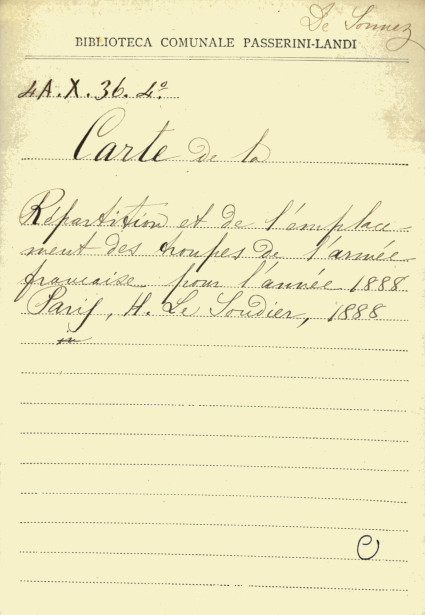 De
BIBLIOTECA COMUNALE PASSERINI-LANDI
4A.X.36.4º
Carte de la
Répartition et de l'emplace-
ment des troupes de l'armée
française pour l'année 1888
Paris, H. Le Soudier, 1888